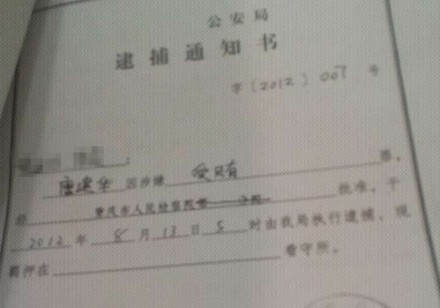 公安局
逮捕通知书
字〔2012〕007号
：
唐建华 因涉嫌 受贿 罪，
经 重庆市人民检察院第一分院 批准，于
2012年8月13日5时由我局执行逮捕，现
羁押在 看守所。